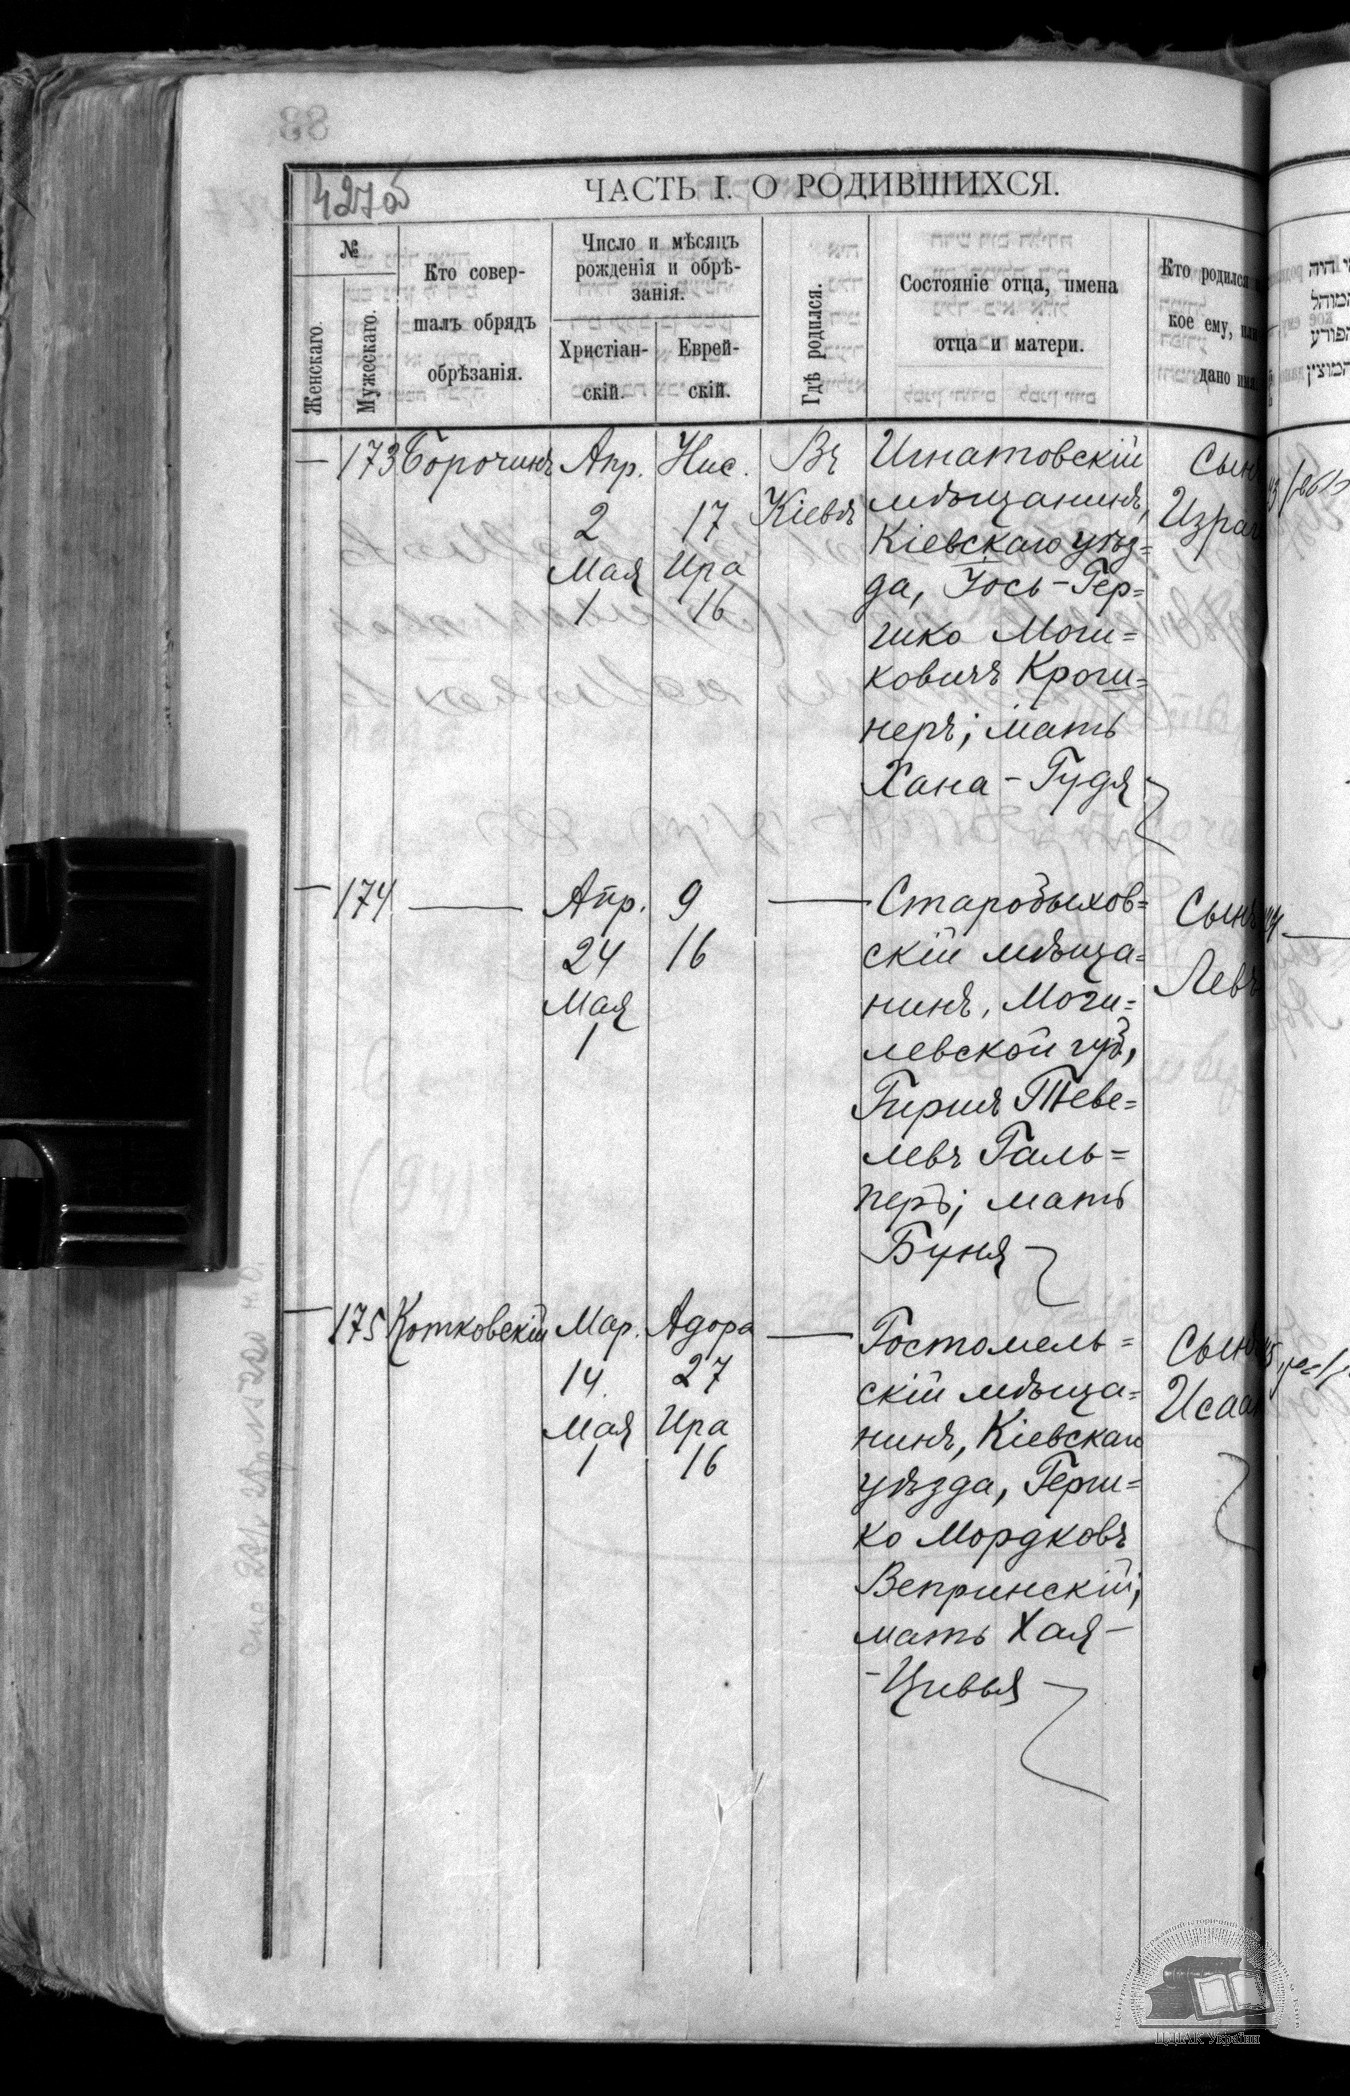 427об
ЧАСТЬ I. О РОДИВШИХСЯ.
№
Женскаго.
Мужескаго.
Кто совер-
шалъ обрядъ
обрѣзанія.
Число и мѣсяцъ
рожденія и обрѣ-
занія.
Христіан-
скій.
Еврей-
скій.
Гдѣ родился.
Состояніе отца, имена
отца и матери.
Кто родился
кое ему, или
дано имя
— 173 Борочинъ Апр. 2 Мая 1
Нис. 17 Ира 16
Въ Кіевѣ
Игнатовскій
мѣщанинъ,
Кіевскаго уѣз=
да, Іось-Гер=
шко Мош=
ковичъ Крош=
неръ; мать
Хана-Гудя
Сынъ
Израи
— 174 — Апр. 24 Мая 1
9 16
—
Старобыхов=
скій мѣща=
нинъ, Моги=
левской губ,
Гиршъ Теве=
левъ Галь=
перъ; мать
Буня
Сынъ
Левъ
— 175 Котковскій Мар. 14. Мая 1
Адора 27 Ира 16
—
Гостомель=
скій мѣща=
нинъ, Кіевскаго
уѣзда, Герш=
ко Мордковъ
Вепринскій;
мать Хая-
-Цивья
Сынъ
Исаак
היה
המוהל
הפורע
המוצץ
ЦДІАК України